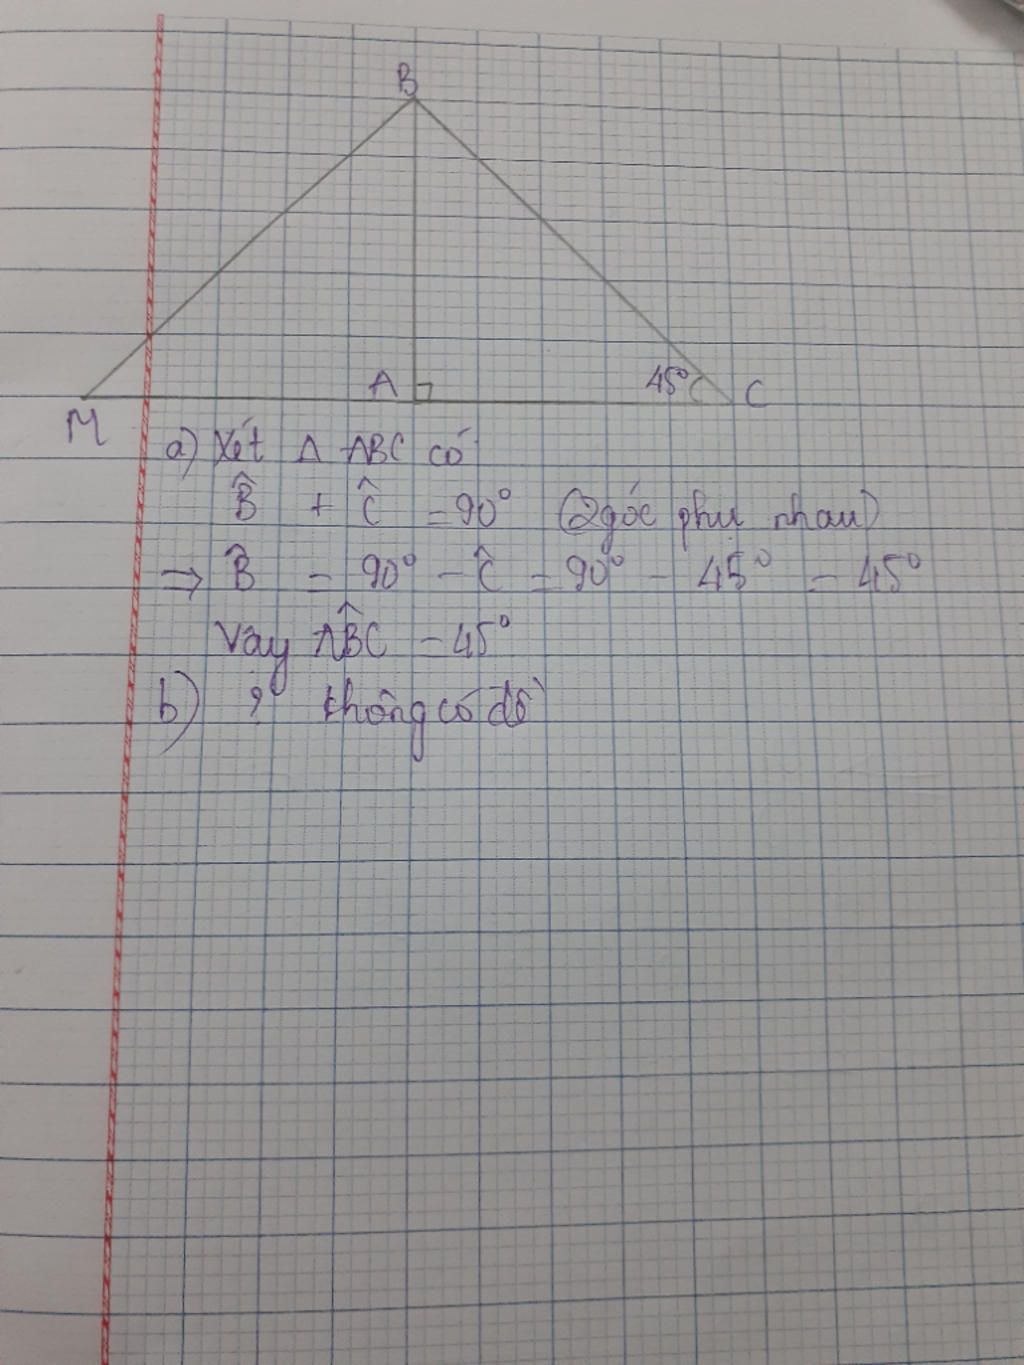 B
A
45°
C
M
a) Xét Δ ABC có
B̂ + Ĉ = 90° (2 góc phụ nhau)
=> B̂ = 90° - Ĉ = 90° - 45° = 45°
Vậy AB̂C = 45°
b) ? không có đề